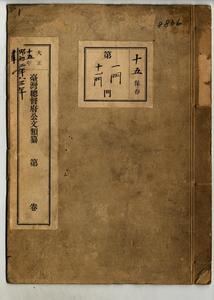 8866
十五保存
第 一門 門
十一門
大正
十五年
昭和二年
臺灣總督府公文類纂 第 卷